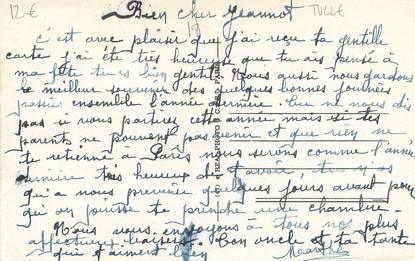 12 €
TULLE
Bien cher Jeannot
c'est avec plaisir que j'ai reçu ta gentille
carte j'ai été très heureuse que tu ais pensé à
ma fête tu es bien gentil. Nous aussi nous gardons
le meilleur souvenir des quelques bonnes journées
passées ensemble l'année dernière. Tu ne nous dis
pas si vous partirez cette année mais si tes
parents ne pouvent pas venir et que rien ne
te retienne à Paris nous serons comme l'année
dernière très heureux de t'avoir, tu
qui a nous prévenir quelques jours avant pour
qu'on puisse te prendre une chambre.
Nous vous envoyons à tous nos plus
affectueux baisers. Ton oncle et ta tante
qui t'aiment bien Marthe